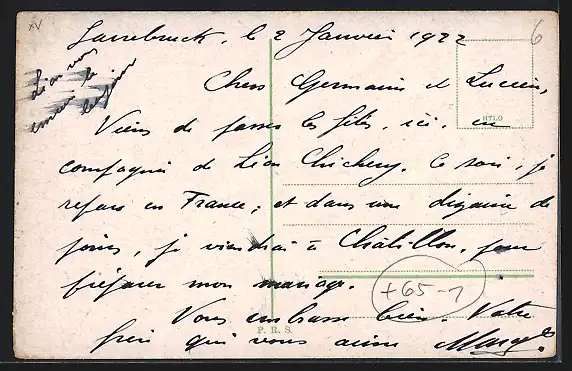 Sarrebruck, le 2 Janvier 1922
Léon vous
envoie le
bonjour
Chers Germaine et Lucien,
Viens de passer les fêtes, ici, en
compagnie de Léon Chichery. Ce soir, je
repars en France; et dans une dizaine de
jours, je viendrai à Châtillon, pour
préparer mon mariage.
Vous embrasse bien. Votre
frère qui vous aime
HTLO
+65-1
P. R. S.
6
XV